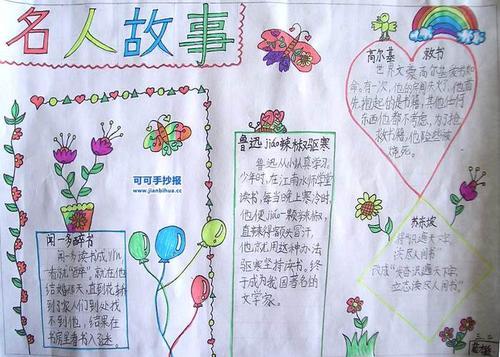 名人故事
高尔基 救书
世界文豪高尔基爱书如
命。有一次，他的房间失火了，他首
先抱起的是书籍，其他任何
东西他都不考虑，为了抢
救书籍，他险些被
烧死。
可可手抄报
www.jianbihua.cc
鲁迅jiáo辣椒驱寒
鲁迅从小认真学习，
少年时，在江南水师学堂
读书，每当晚上寒冷时，
他便jiáo一颗辣椒，
直辣得额头冒汗，
他就用这种办法
驱寒坚持读书。终
于成为我国著名的
文学家。
闻一多醉书
闻一多读书成yǐn，
一看就“醉”，就在他
结婚那天，直到花轿
到了家人们到处找
不到他，结果在
书房里看书入了迷。
苏东坡
识遍天下字，
读尽人间书”
改成“发愤识遍天下字，
立志读尽人间书”